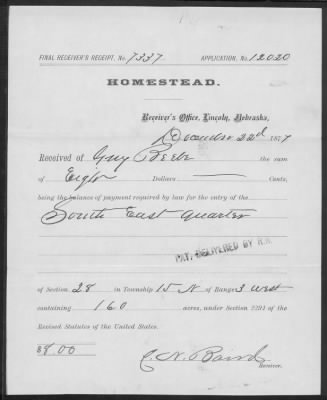 FINAL RECEIVER'S RECEIPT, No. 7337 APPLICATION, No. 12020
HOMESTEAD.
Receiver's Office, Lincoln, Nebraska,
December 22d 1877
Received of Guy Beebe the sum
of Eight Dollars Cents,
being the balance of payment required by law for the entry of the
South East Quarter
PAT. DELIVERED BY R.R.
of Section 28 in Township 15 N of Range 3 West
containing 160 acres, under Section 2291 of the
Revised Statutes of the United States.
$8.00
C. N. Baird
Receiver.